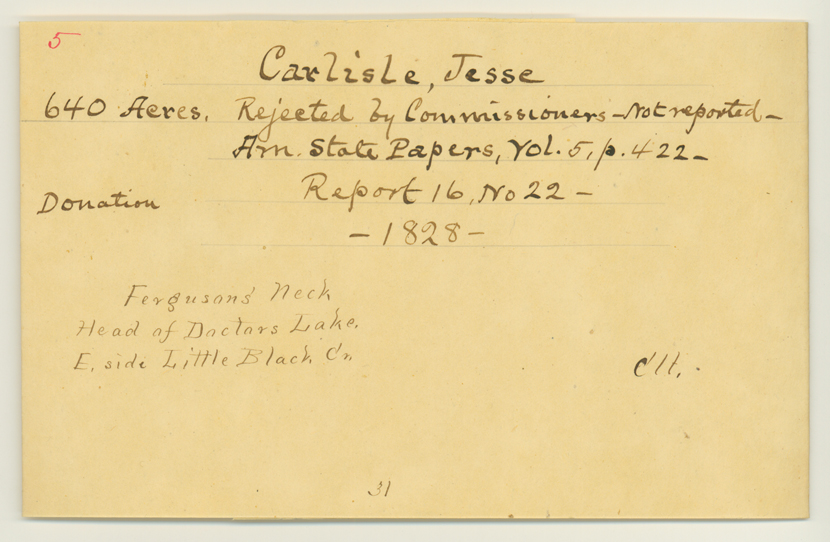 5
Carlisle, Jesse
640 Acres. Rejected by Commissioners - Not reported -
Am. State Papers, Vol. 5, p. 422 -
Donation
Report 16, No 22 -
- 1828 -
Fergusons' Neck
Head of Doctors Lake.
E. side Little Black Cr.
31